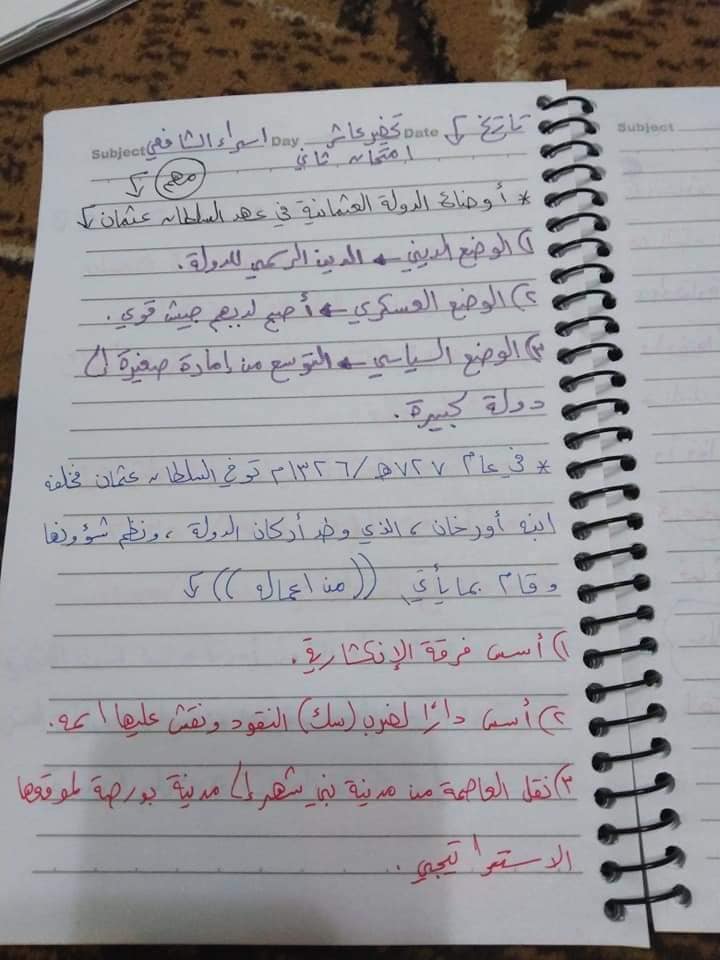 تاريخ ↓ تحضير عاشر اسراء الشافعي
Subject Day Date
Subject
امتحان ثاني
مهم ↓
* أوضاع الدولة العثمانية في عهد السلطان عثمان ↓
١) الوضع الديني ← الدين الرسمي للدولة.
٢) الوضع العسكري ← أصبح لديهم جيش قوي.
٣) الوضع السياسي ← التوسع من إمارة صغيرة إلى
دولة كبيرة.
* في عام ٧٢٧هـ/١٣٢٦م توفي السلطان عثمان فخلفه
ابنه أورخان، الذي وطد أركان الدولة، ونظم شؤونها
وقام بما يأتي ((من اعماله)) ↓
١) أسس فرقة الإنكشارية.
٢) أسس دارًا لضرب (سك) النقود ونقش عليها اسمه.
٣) نقل العاصمة من مدينة بني شهر إلى مدينة بورصة لموقعها
الاستراتيجي.